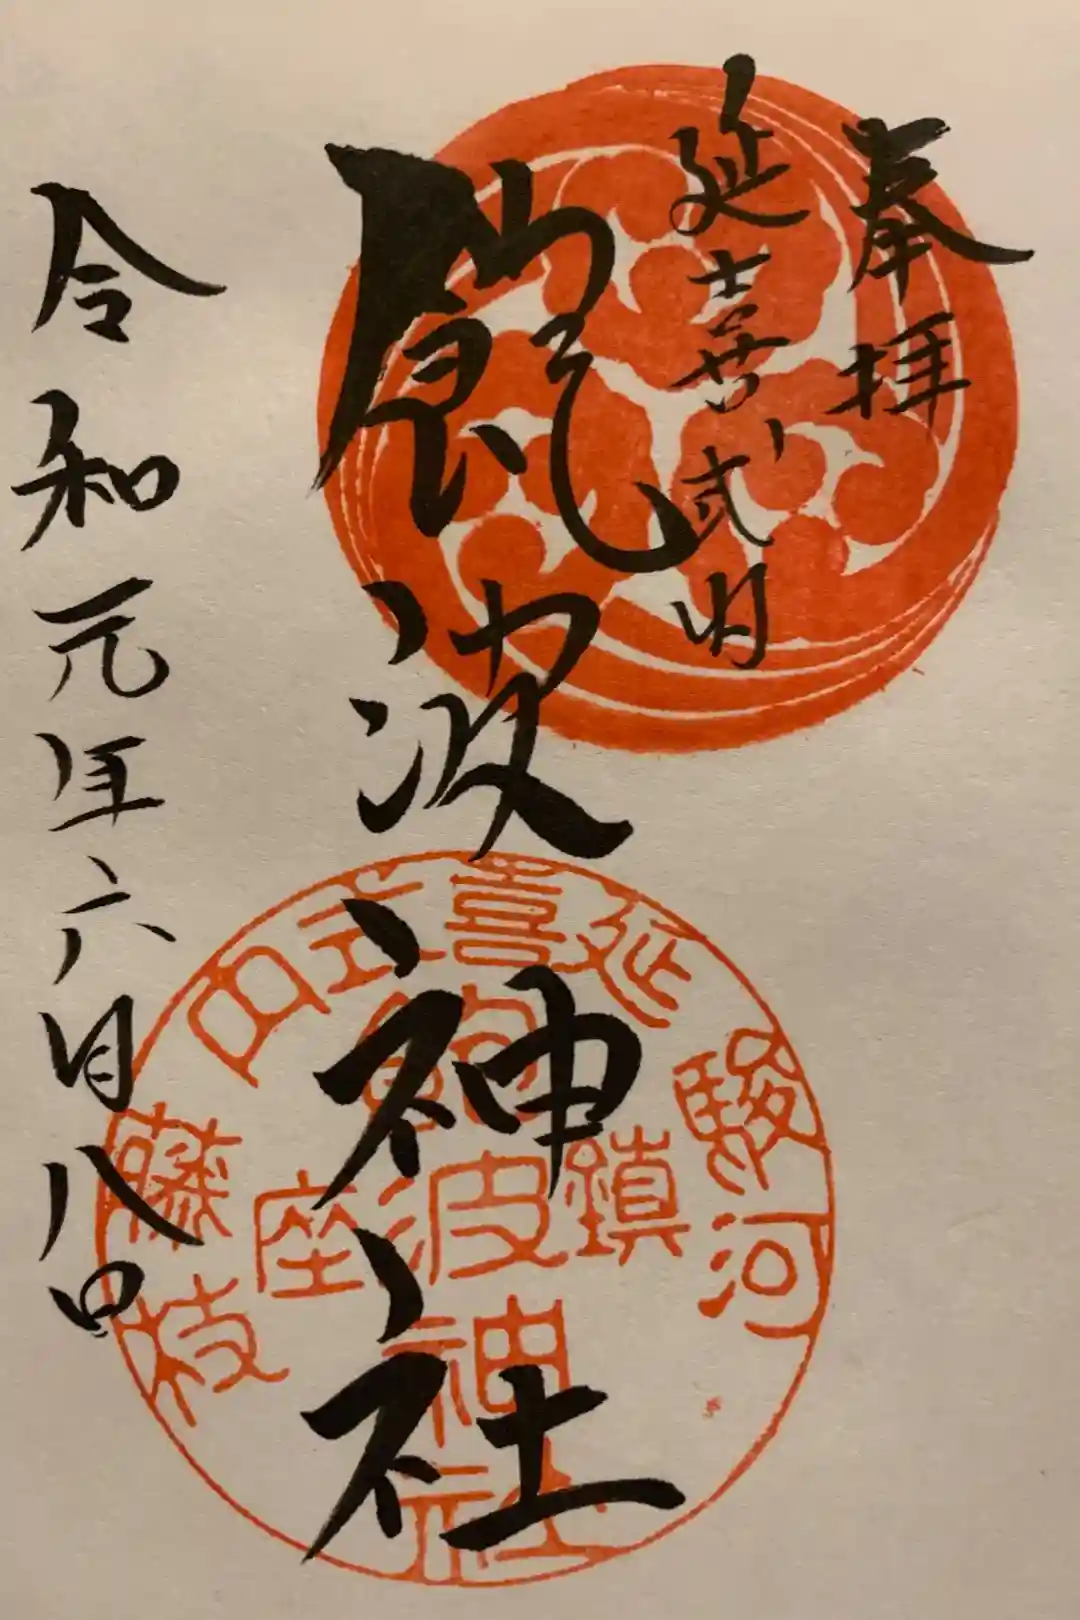 奉拝
延喜式内
飽波神社
令和元年六月八日
延喜式内
駿河
藤枝
鎮座
飽波神社